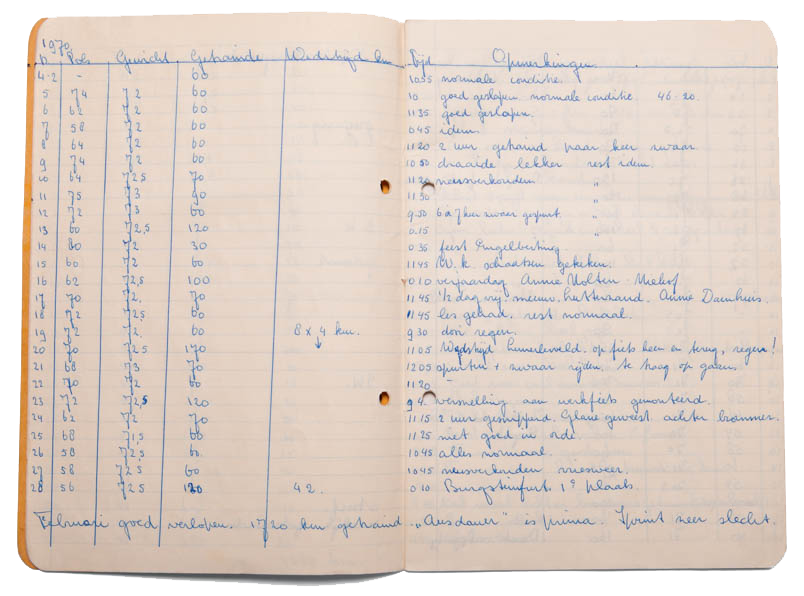 1970
D Pols Gewicht Getrainde Wedstrijd km Tijd Opmerkingen
4-2 - 60 10.55 normale conditie.
5 74 72 60 10 goed geslapen. normale conditie. 46-20.
6 62 72 60 11.35 goed geslapen.
7 58 72 60 0.45 idem.
8 64 72 60 11.20 2 uur getraind paar keer zwaar
9 74 72 60 10.50 draaide lekker rest idem.
10 64 72.5 70 11.20 neusverkouden "
11 75 73 90 11.30 "
12 72 73 60 9.50 6 a 7 keer zwaar gespurt. "
13 60 72,5 120 0.15 "
14 80 72 30 0.35 feest Engelbertink.
15 60 72 60 11.45 W.K. schaatsen gekeken.
16 62 72,5 100 0.10 verjaardag Annie
17 70 72. 70 11.45 1/2 dag vrij. Annie Damhuis.
18 72 72,5 60 11.45 les gehad. rest normaal.
19 72 72. 60 8 x 4 km. 9.30 door regen.
20 70 72.5 170 ↓ 11.05 Wedstrijd op fiets heen en terug, regen!
21 68 73 70 12.05 spurten + zwaar rijden, te hoog op gaan.
22 70 72 60 11.20 -
23 72 72,5 120 9.4 versnelling aan werkfiets gemonteerd.
24 62 72 70 11.15 2 uur gesnipperd. Glane geweest achter brommer.
25 68 71,5 60 11.25 niet goed in orde.
26 58 72.5 60 10.45 alles normaal.
27 58 72.5 60 10.45 neusverkouden vriesweer.
28 56 72.5 120 42. 0.10 Burgsteinfurt. 1e plaats.
Februari goed verlopen. 1720 km getraind. "Ausdauer" is prima. Sprint zeer slecht.